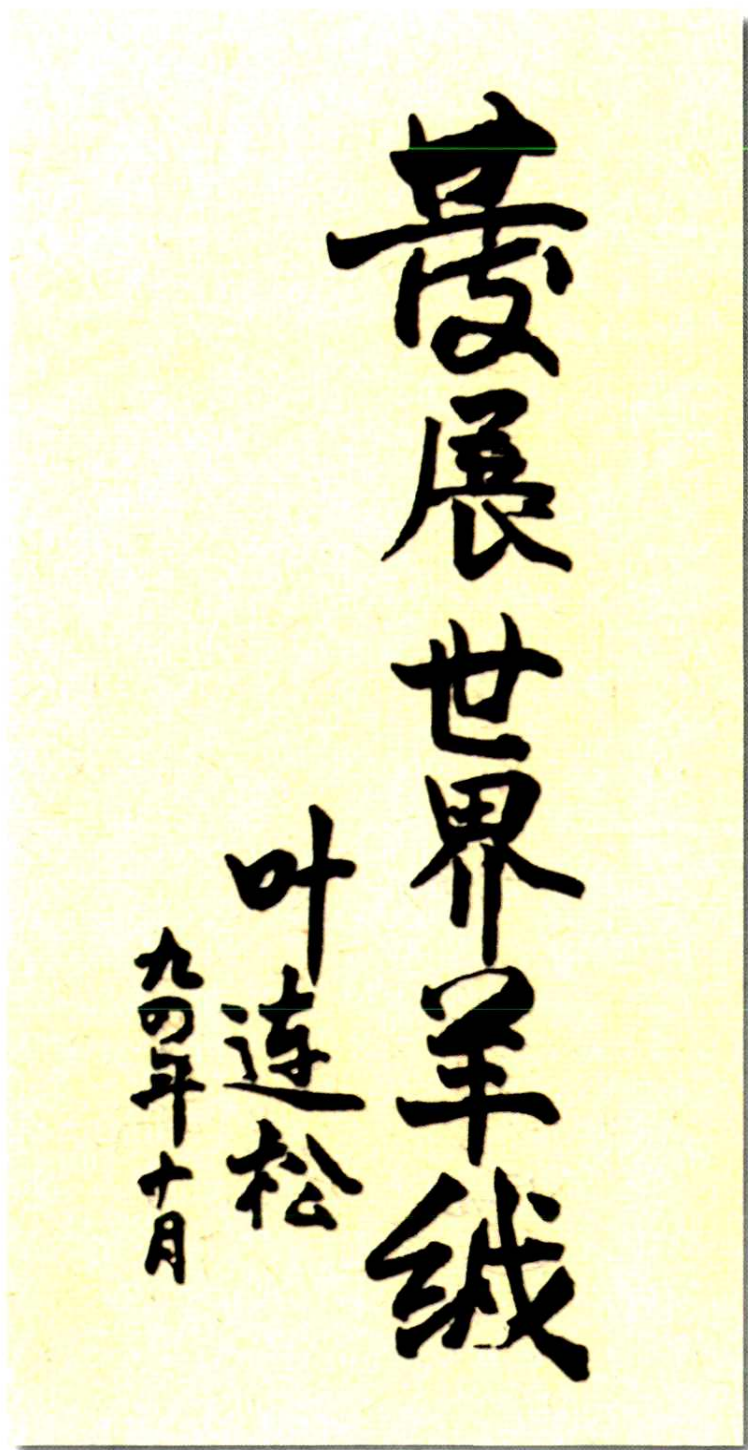 發展世界羊绒
叶连松
九四年十月